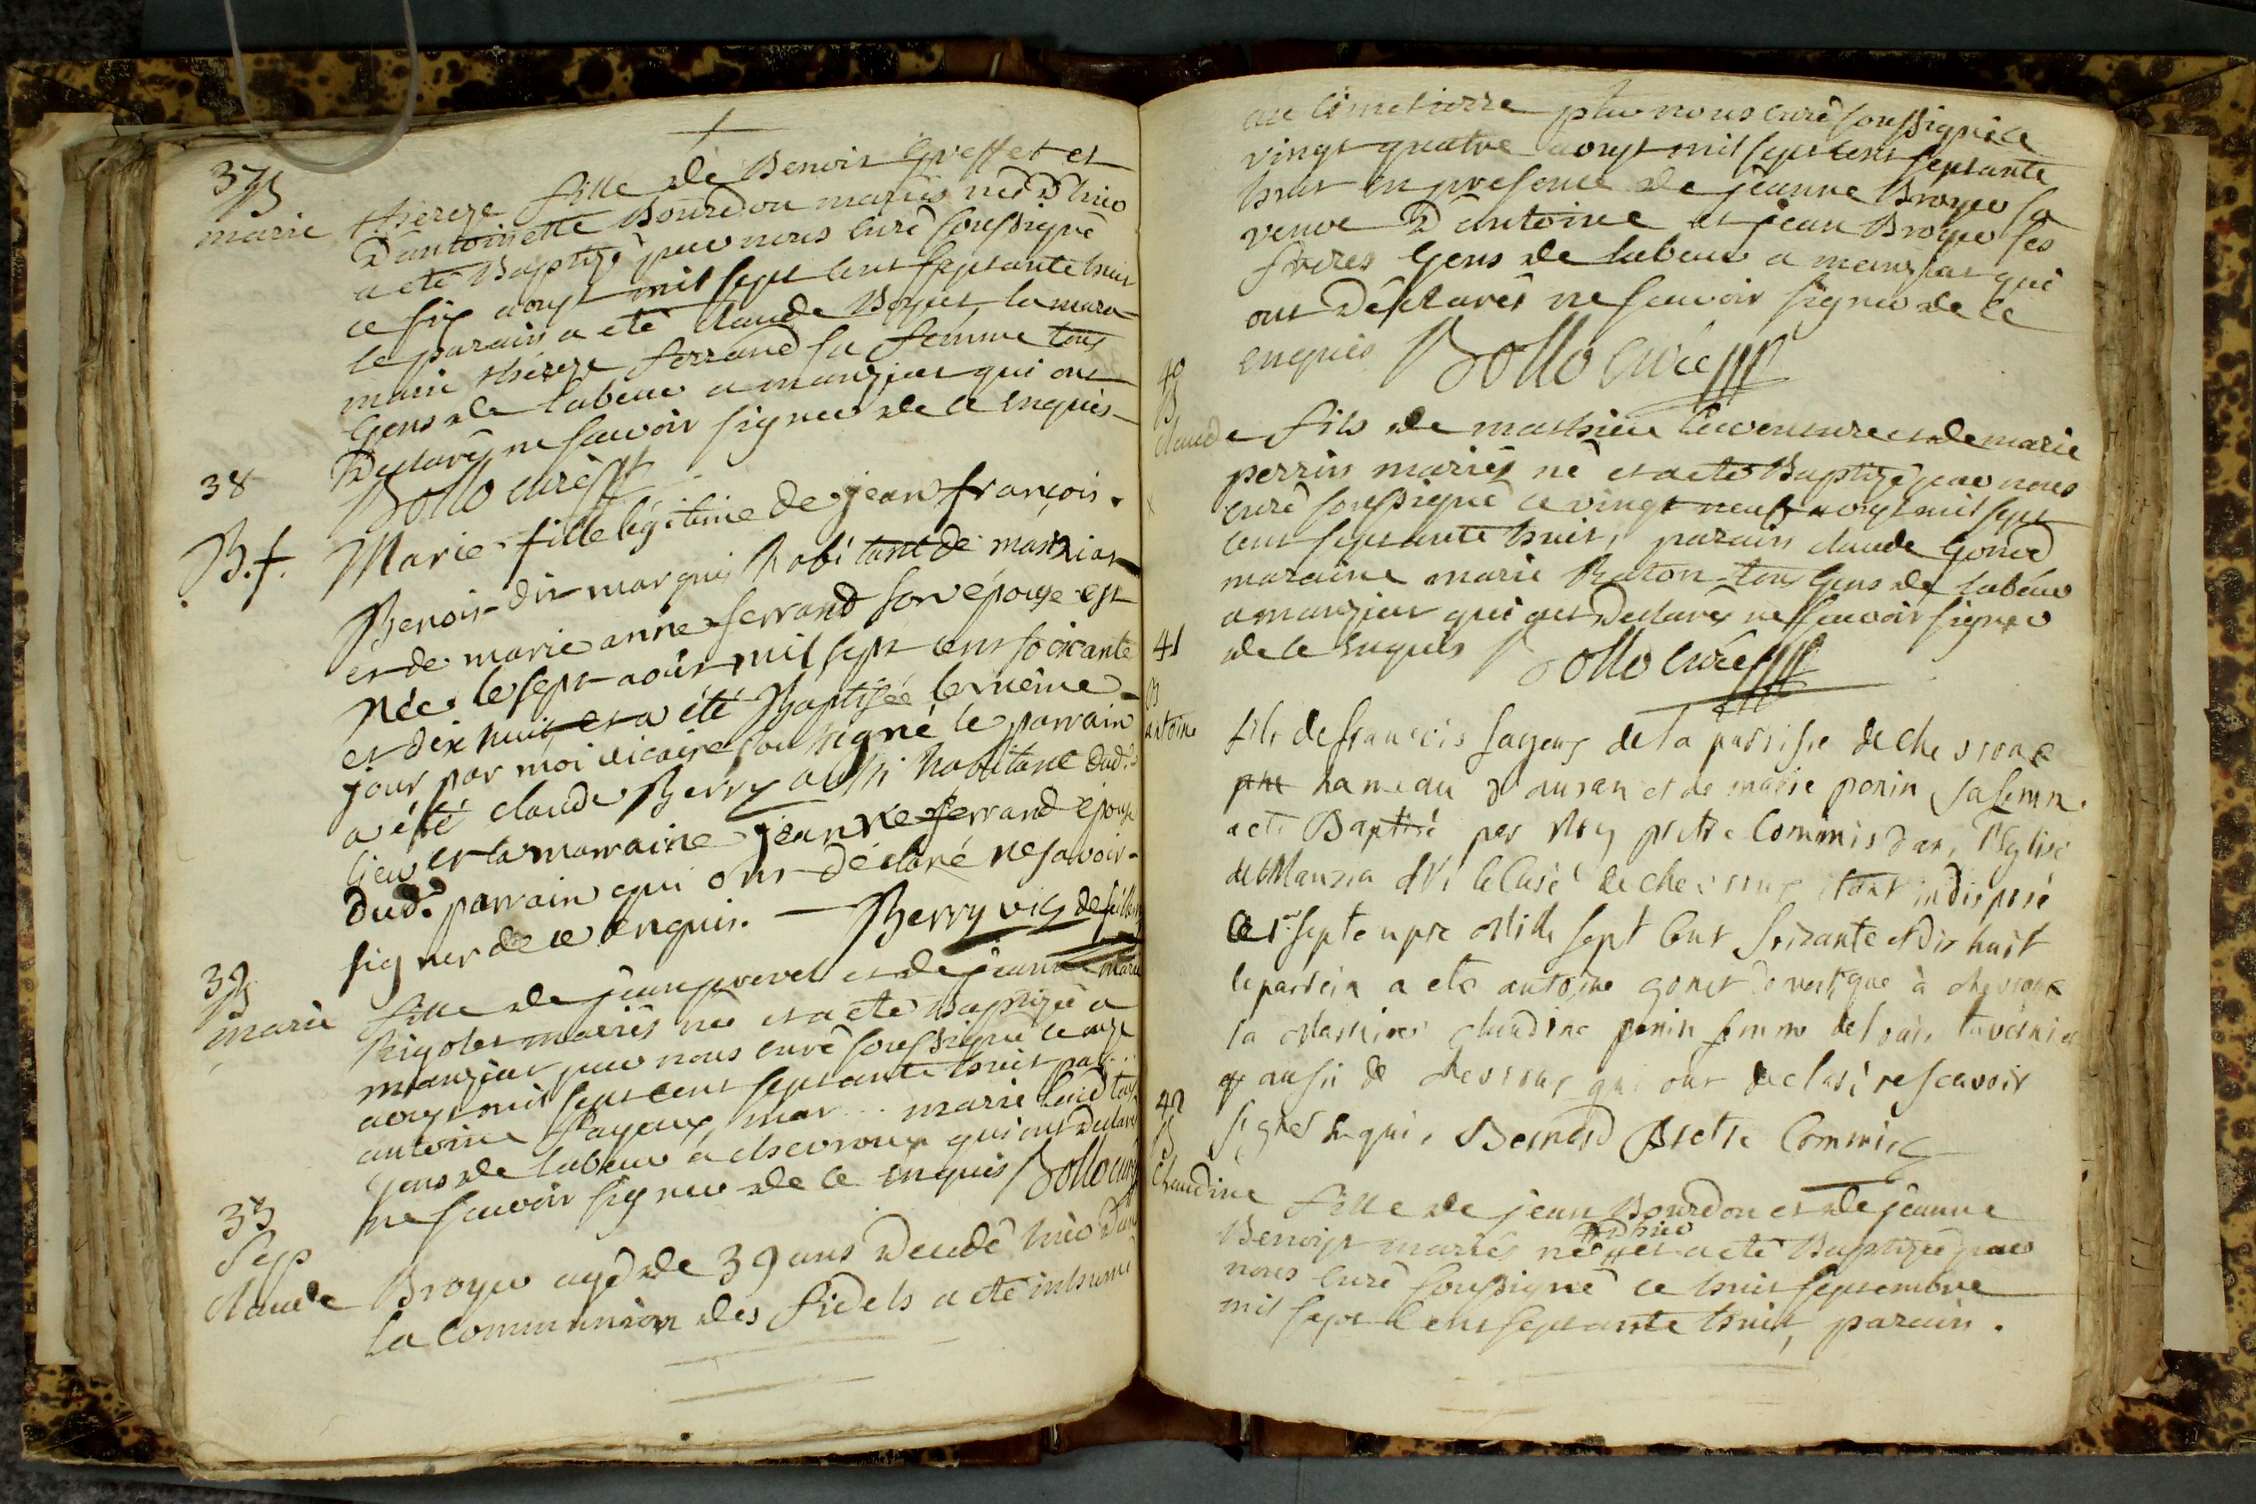 37
B
marie thereze fille de Benoit Greffet et
D'antoinette Bourdon mariés née D'hier
a eté Baptizé par nous curé soussigné
ce six aoust mil sept cent septante huit
le parain a eté claude Boyer la mara
maine thereze ferrand sa femme tous
Gens de labeur a manziat qui ont
Declaré ne scavoir signer de ce enquis
Bollo curé
38
B.f. Marie fille légitime de jean françois
Benoit dit marquis habitant de manziat
et de marie anne ferrand son épouse est
Née le sept août mil sept cent soixante
et dix huit et a été Baptisée le même
jour par moi vicaire soussigné le parrain
a été claude Berry aussi habitant dud.
lieu et la marraine jeanne ferrand épouse
dud. parrain qui ont déclaré ne savoir
signer de ce enquis. Berry vic
39
B
marie fille de jean prevel et de jeanne marie
Rigolet mariés née et a eté Baptizée a
manziat par nous curé soussigné ce onze
aoust mil sept cent septante huit par...
antoine fayeux, mar... marie tous
gens de labeur à chevroux qui ont Declaré
ne scavoir signer de ce enquis Bollo curé
33
Sep
claude Broyer agé de 39 ans Decedé hier Dans
la communion des fidels a eté inhumé
au cimetierre par nous curé soussigné le
vingt quatre aoust mil sept cent septante
huit en presence de jeanne Broyer sa
veuve D'antoine et jean Broyer ses
freres Gens de labeur a manziat qui
ont Déclarés ne scavoir signer de ce
enquis Bollo curé
40
B
claude fils de mathieu et de marie
perrin mariés né et a eté Baptizé par nous
curé soussigné ce vingt neuf aoust mil sept
cent septante huit, parain claude Gonod
maraine marie tous Gens de labeur
a manziat qui ont Declarés ne scavoir signer
de ce enquis Bollo curé
41
B
antoine fils de françois fayeux de la parrisse de chevroux
hameau d'auran et de marie perin sa femme
a eté Baptisé par Moy pretre Commis dans l'Eglise
de Manzia Mr le Curé de chevroux étant indisposé
le 1er septempre Mille sept Cent soixante et dix huit
le parrein a eté antoine gonet domestique à chevroux
la Marreine claudine perin femme de louis tavernier
aussi de chevroux qui ont declaré ne scavoir
signer enquis Bernard Pretre Commis
42
B
Claudine fille de jean Bourdon et de jeanne
Benoist mariés née D'hier et a eté Baptizée par
nous curé soussigné ce huit septembre
mil sept cent septante huit, parain.